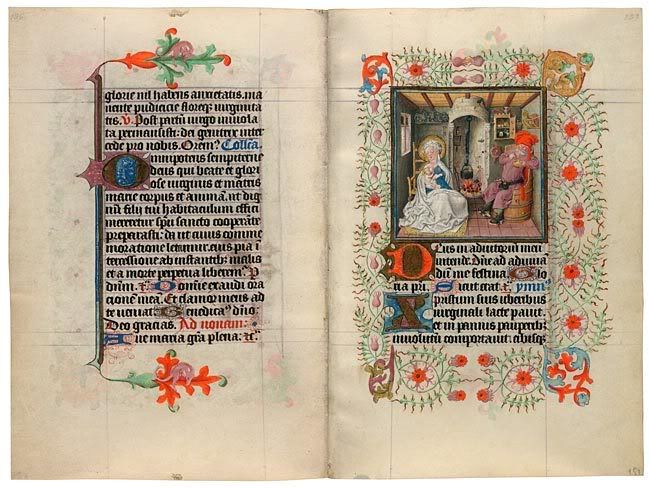 glorie nil habens anxietatis. ma
nente pudicicie floreq; virginita
tis. V. Post partū virgo inviola
ta permansisti: dei genitrix inter
cede pro nobis. Orem9 Collecta
Omnipotens sempiterne
deus qui beate et glori
ose virginis et matris
marie corpus et animā ut dig
num filii tui habitaculum effici
mereretur spū sancto cooperāte
preparasti: da ut cuius comme
moratione letamur eius pia ī
tercessione ab instantib; malis
et a morte perpetua liberem9 P
dn̄um. Domīe exaudi ora
cionē mea. Et clamor meus ad
te veniat Benedica9 dn̄o.
Deo gracias. Ad nonam:
Ave maria grā plena
Deus in adiutoriū meū
intende. Dn̄e ad adiuva
dū me festina. Glo
ria pri. Sicut erat. ymn9
virginali lacte pavit.
et in pannis pauperib;
involutū comportavit